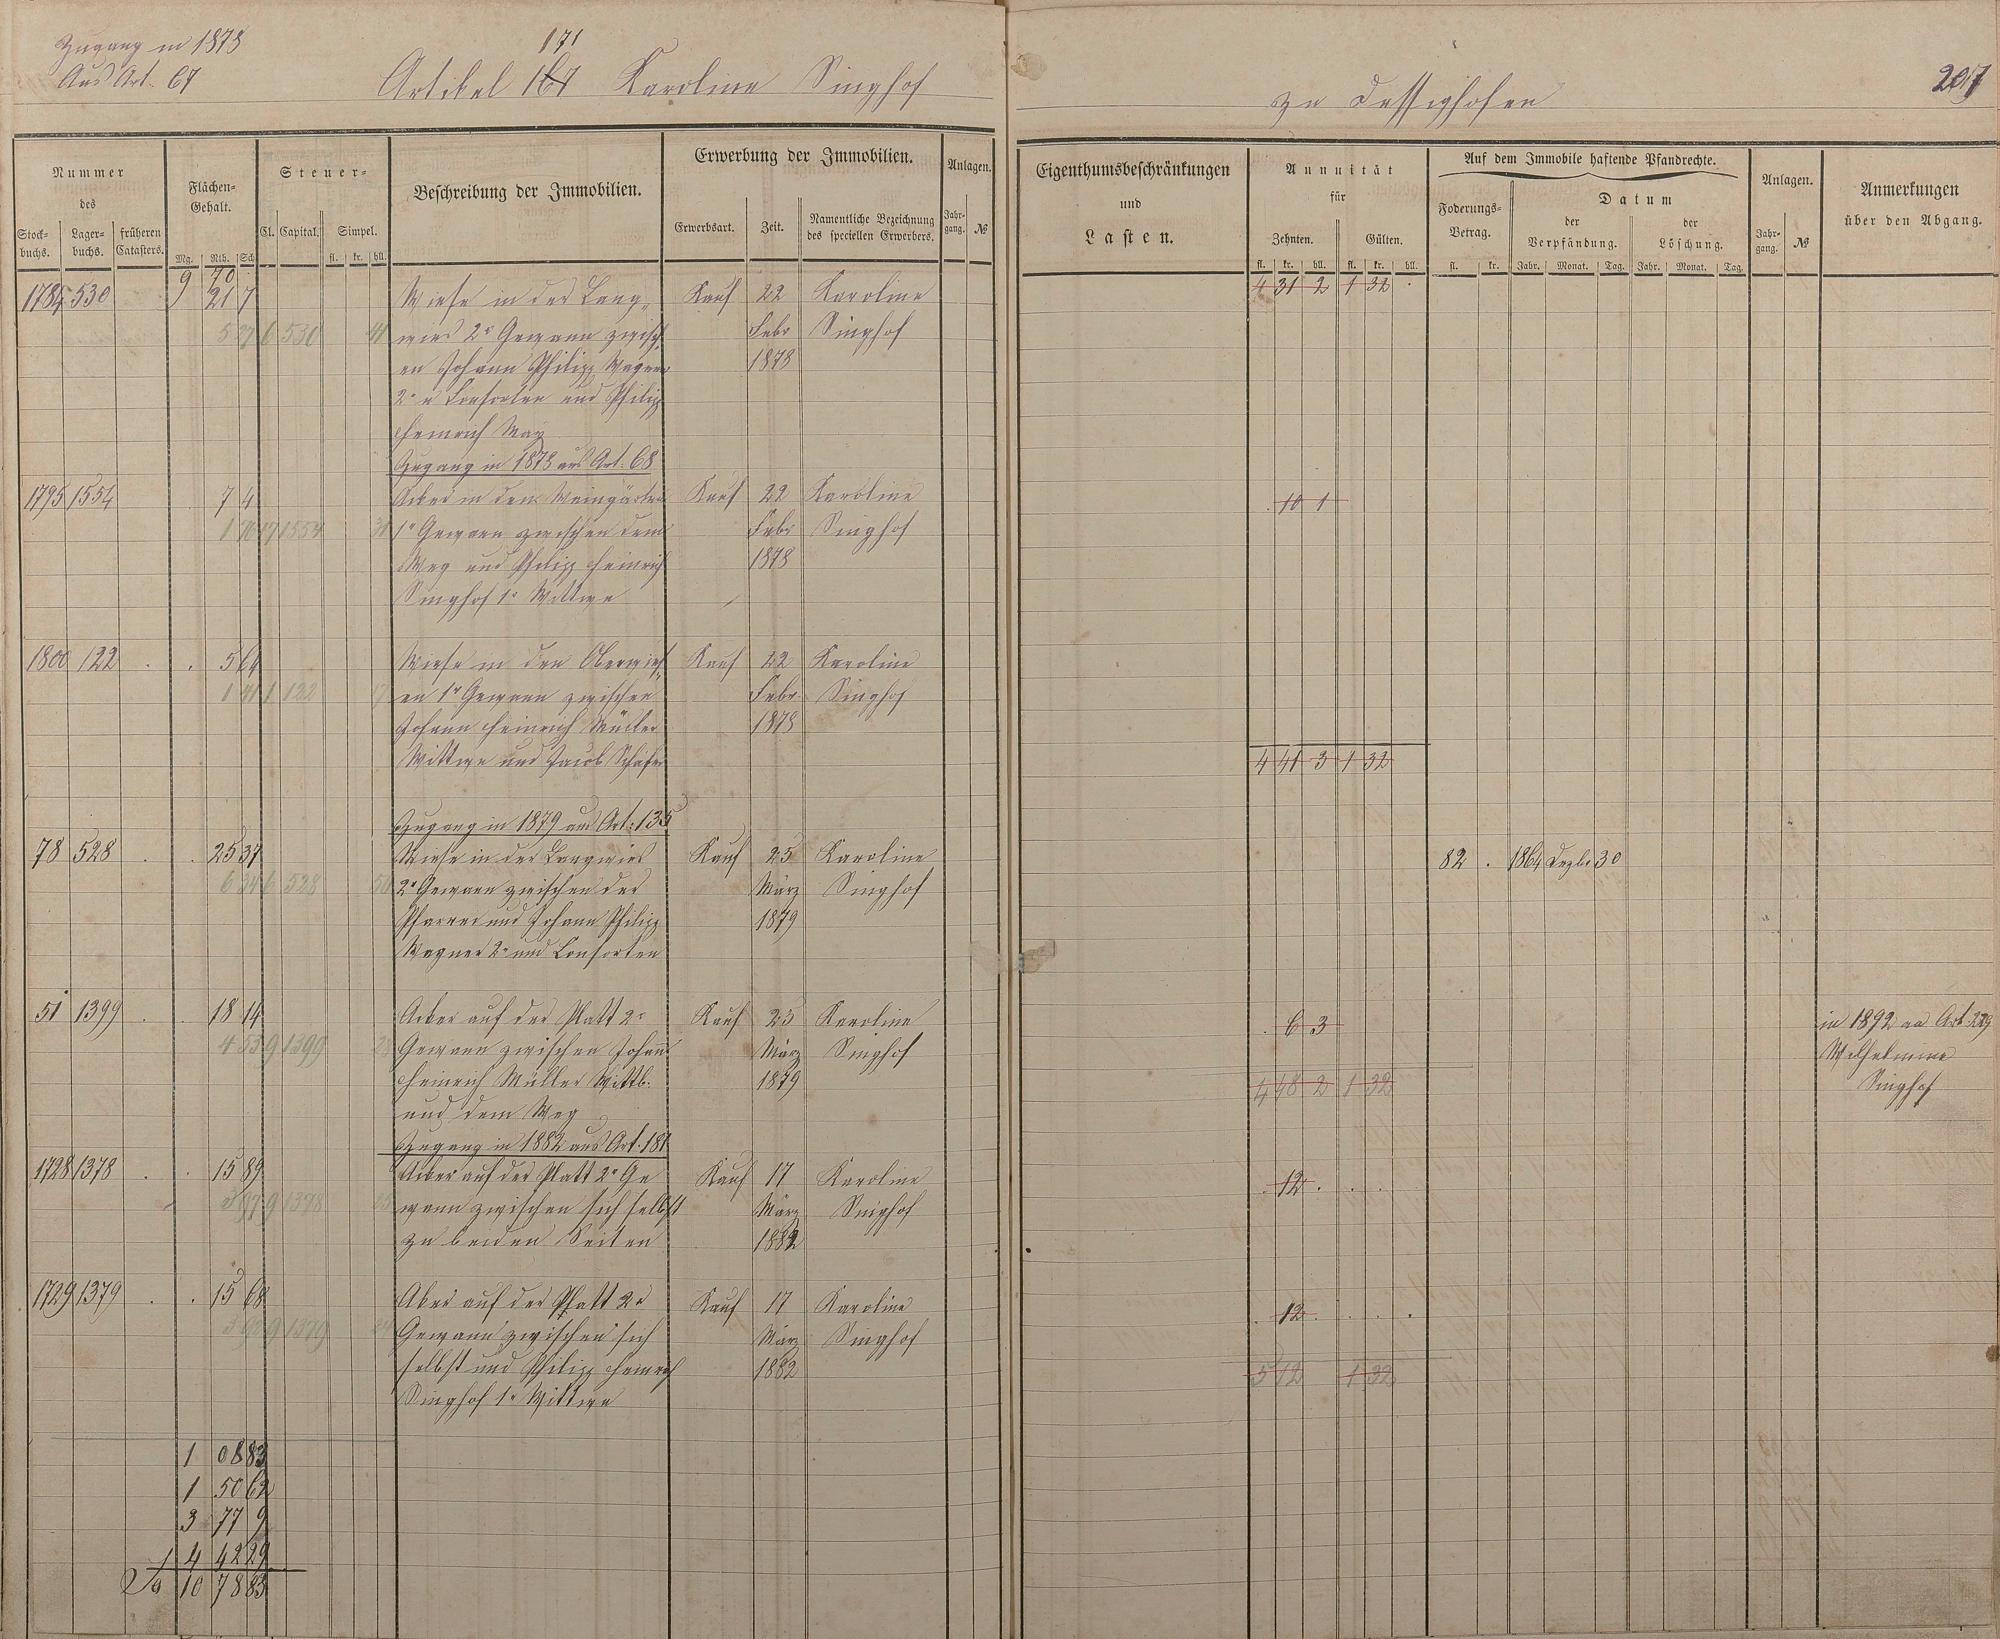 Zugang in 1878
Aus Art. 67
171
Artikel 167 Karoline Singhof
zu Dessighofen
207
Nummer
des
Stock-
buchs.
Lager-
buchs.
früheren
Catasters.
Flächen-
Gehalt.
Mg. Rth. Sch.
Steuer-
Cl. Capital. Simpel.
fl. kr. hll.
Beschreibung der Immobilien.
Erwerbung der Immobilien.
Erwerbsart. Zeit.
Namentliche Bezeichnung
des speciellen Erwerbers.
Anlagen.
Jahr-
gang. №
Eigenthumsbeschränkungen
und
Lasten.
Annuität
für
Zehnten. Gülten.
fl. kr. hll. fl. kr. hll.
Auf dem Immobile haftende Pfandrechte.
Foderungs-
Betrag.
fl. kr.
Datum
der
Verpfändung.
der
Löschung.
Jahr. Monat. Tag. Jahr. Monat. Tag.
Anlagen.
Jahr-
gang. №
Anmerkungen
über den Abgang.
9 70
1784 530 21 7 Wiese in der Lang- Kauf 22 Karoline 4 31 2 1 32
5 37 6 530 41 wies 2r Gewann zwisch- Febr Singhof
en Johann Philipp Wagner 1878
2r u Consorten und Philip
Heinrich May
Zugang in 1878 aus Art. 68
1795 1554 7 4 Acker in den Weingärten Kauf 22 Karoline 10 1
1 76 17 1554 1r Gewann zwischen dem Febr Singhof
Weg und Philipp Heinrich 1878
Singhof 1r Wittwe
1800 122 5 64 Wiese in den Oberwies- Kauf 22 Karoline
1 41 1 122 17 en 1r Gewann zwischen Febr. Singhof
Johann Heinrich Müller 1878
Wittwe und Jacob Schäfer 4 41 3 1 32
Zugang in 1879 aus Art. 135
78 528 25 37 Wiese in der Langwies Kauf 25 Karoline 82 1864 Dezbr 30
6 34 6 528 50 2r Gewann zwischen der März Singhof
Pfarrei und Johann Philipp 1879
Wagner 2r und Consorten
51 1399 18 14 Acker auf der Platt 2r Kauf 25 Karoline 6 3 in 1892 an Art. 229
4 53 9 1399 28 Gewann zwischen Johann März Singhof Wilhelmine
Heinrich Müller Wittb. 1879 4 48 2 1 32 Singhof
und dem Weg
Zugang in 1882 aus Art. 181
1728 1378 15 89 Acker auf der Platt 2r Ge Kauf 17 Karoline 12
3 97 9 1378 25 wann zwischen sich selbst März Singhof
zu beiden Seiten 1882
1729 1379 15 68 Acker auf der Platt 2r Kauf 17 Karoline 12
3 92 9 1379 24 Gewann zwischen sich März Singhof
selbst und Philipp Heinrich 1882 5 12 1 32
Singhof 1r Wittwe
1 08 83
1 50 62
3 77 9
4 42 29
Sa 10 78 83